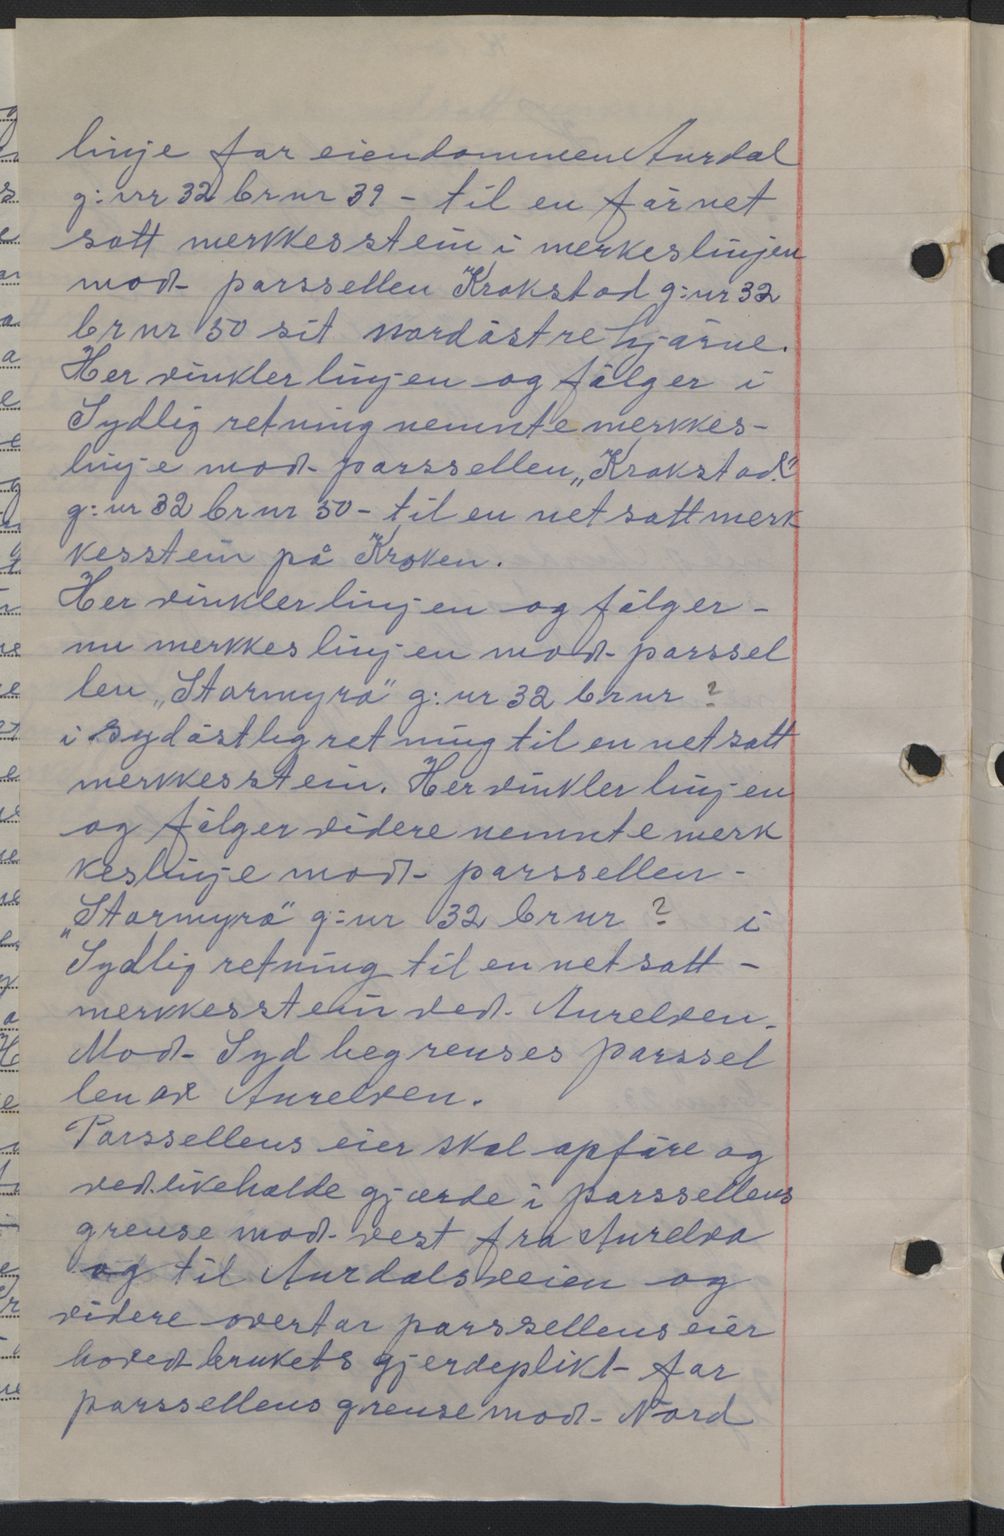 linje for eiendommen Aurdal
g: nr 32 br nr 39 - til en før net
satt merkkesstein i merkeslinjen
mod- parssellen Krokstad g: nr 32
br nr 50 sit nordøstre hjørne.
Her vinkler linjen og følger i
Sydlig retning nemnte merkkes-
linje mod- parssellen „Krokstad."
g: nr 32 br nr 50 - til en net satt merk
kesstein på Kroken.
Her vinkler linjen og følger -
nu merkkeslinjen mod- parssel
len „Stormyra" g: nr 32 br nr ?
i sydøstlig retning til en net satt
merkkesstein. Her vinkler linjen
og følger videre nemnte merk
keslinje mod- parssellen -
„Stormyra" g: nr 32 br nr ? i
Sydlig retning til en net satt -
merkkesstein ved- Aurelven.
Mod- Syd begrenses parssel
len av Aurelven.
Parssellens eier skal opføre og
vedlikeholde gjærde i parssellens
grense mod- vest fra Aurelva
og til Aurdalsveien og
videre overtar parssellens eier
hovedbrukets gjerdeplikt- for
parssellens grense mod- Nord